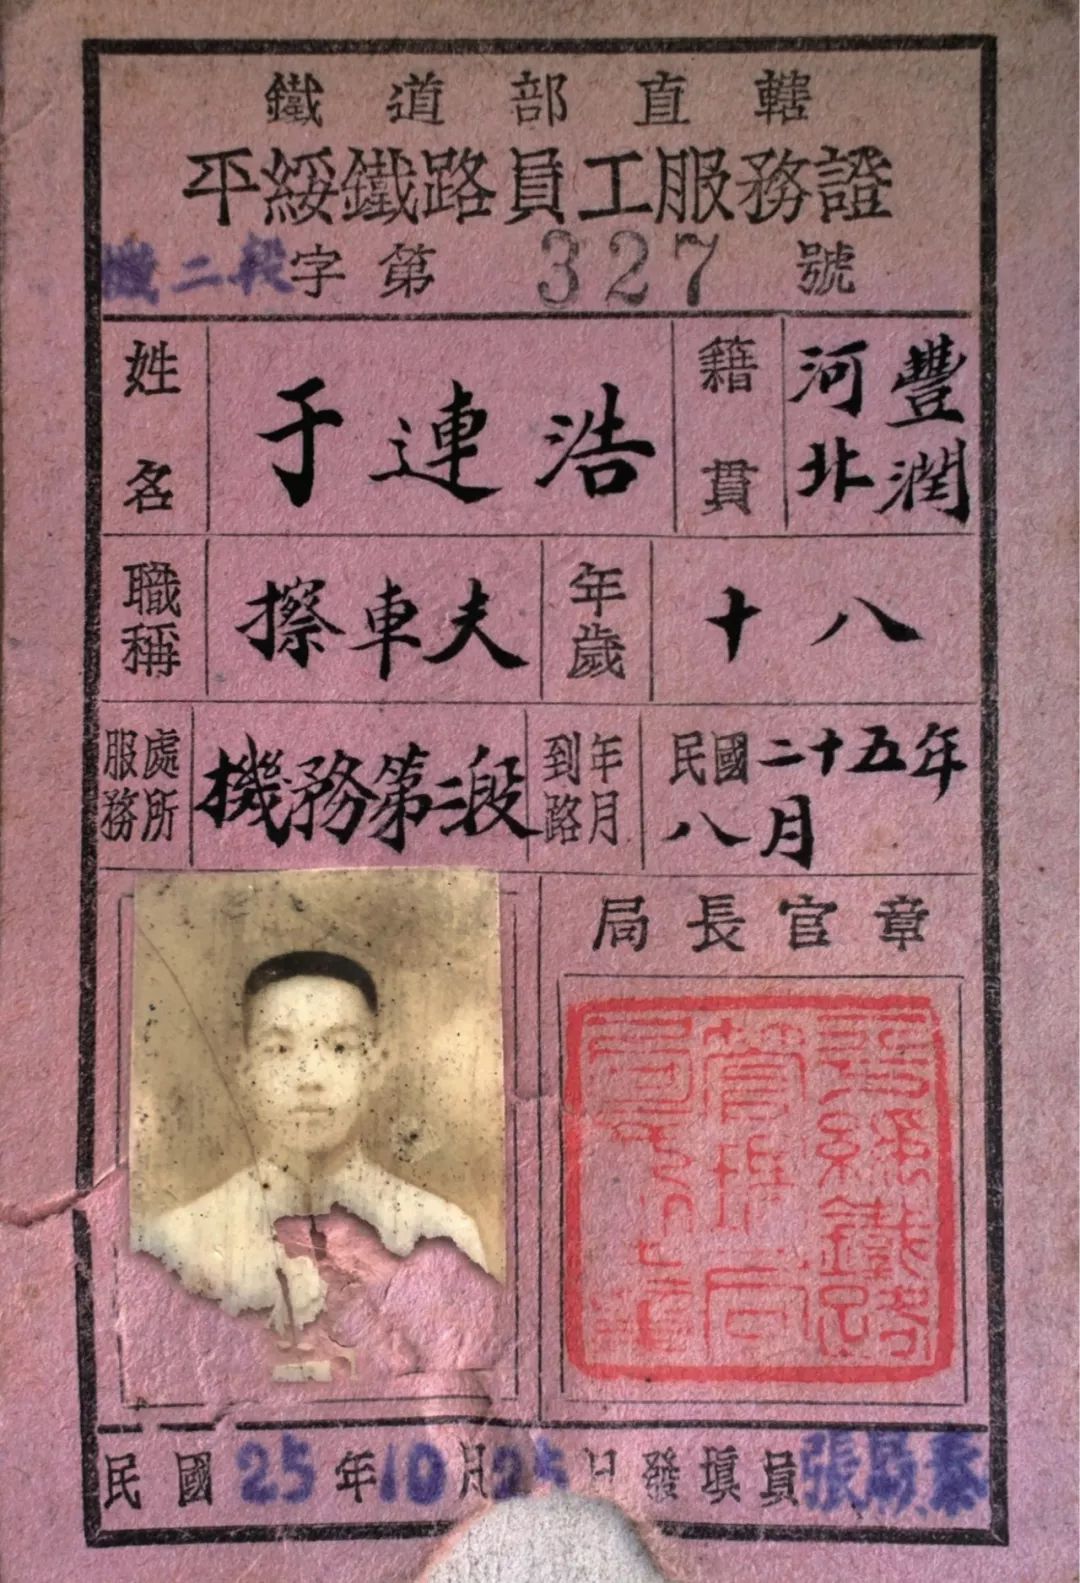 鐵道部直轄
平綏鐵路員工服務證
機二段字第327號
姓名 于連浩 籍貫 河北豐潤
職稱 擦車夫 年歲 十八
服務處所 機務第二段 到路年月 民國二十五年八月
局長官章
平綏鐵路管理局局長之章
民國25年10月 日發填員張